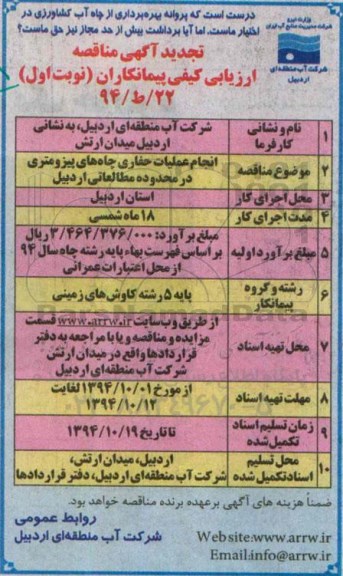 درست است که پروانه بهره‌برداری از چاه آب کشاورزی در
اختیار ماست. اما آیا برداشت بیش از حد مجاز نیز حق ماست؟
وزارت نیرو
شرکت مدیریت منابع آب ایران
شرکت آب منطقه‌ای
اردبیل
تجدید آگهی مناقصه
ارزیابی کیفی پیمانکاران (نوبت اول)
۲۲/ط/۹۴
۱ نام و نشانی کارفرما شرکت آب منطقه‌ای اردبیل، به نشانی
اردبیل میدان ارتش
۲ موضوع مناقصه انجام عملیات حفاری چاه‌های پیزومتری
در محدوده مطالعاتی اردبیل
۳ محل اجرای کار استان اردبیل
۴ مدت اجرای کار ۱۸ ماه شمسی
۵ مبلغ برآورد اولیه مبلغ برآورد: ۳/۴۶۴/۳۷۶/۰۰۰ ریال
بر اساس فهرست بهاء پایه رشته چاه سال ۹۴
از محل اعتبارات عمرانی
۶ رشته و گروه پیمانکار پایه ۵ رشته کاوش‌های زمینی
۷ محل تهیه اسناد از طریق وب سایت www.arrw.ir قسمت
مزایده و مناقصه و یا با مراجعه به دفتر
قراردادها واقع در میدان ارتش
شرکت آب منطقه‌ای اردبیل
۸ مهلت تهیه اسناد از مورخ ۱۳۹۴/۱۰/۰۱ لغایت
۱۳۹۴/۱۰/۱۲
۹ زمان تسلیم اسناد تکمیل شده تا تاریخ ۱۳۹۴/۱۰/۱۹
۱۰ محل تسلیم اسناد تکمیل شده اردبیل، میدان ارتش،
شرکت آب منطقه‌ای اردبیل، دفتر قراردادها
ضمناً هزینه های آگهی بر عهده برنده مناقصه خواهد بود.
روابط عمومی
شرکت آب منطقه‌ای اردبیل
Website:www.arrw.ir
Email:info@arrw.ir